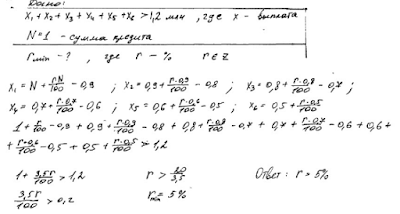 Дано:
x₁ + x₂ + x₃ + x₄ + x₅ + x₆ > 1,2 млн , где x – выплата
N=1 – сумма кредита
r min - ? , где r – % r ∈ Z
x₁ = N + rN/100 – 0,9 ; x₂ = 0,9 + r·0,9/100 – 0,8 ; x₃ = 0,8 + r·0,8/100 – 0,7 ;
x₄ = 0,7 + r·0,7/100 – 0,6 ; x₅ = 0,6 + r·0,6/100 – 0,5 ; x₆ = 0,5 + r·0,5/100
1 + r/100 – 0,9 + 0,9 + r·0,9/100 – 0,8 + 0,8 + r·0,8/100 – 0,7 + 0,7 + r·0,7/100 – 0,6 + 0,6 +
+ r·0,6/100 – 0,5 + 0,5 + r·0,5/100 > 1,2
1 + 3,5r/100 > 1,2 r > 20/3,5 Ответ: r > 5%
3,5r/100 > 0,2 r min = 5%